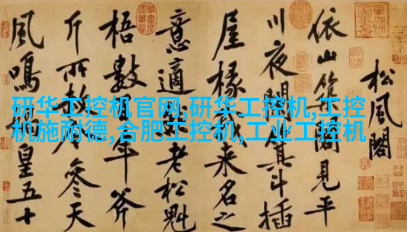 松風閣
依山築閣見平
川夜闌箕斗插
屋椽我來名之
意適然老松魁
梧數百年斧
斤所赦今參天
風鳴媧皇五十
研华工控机官网,研华工控机,工控
机施耐德,合肥工控机,工业工控机